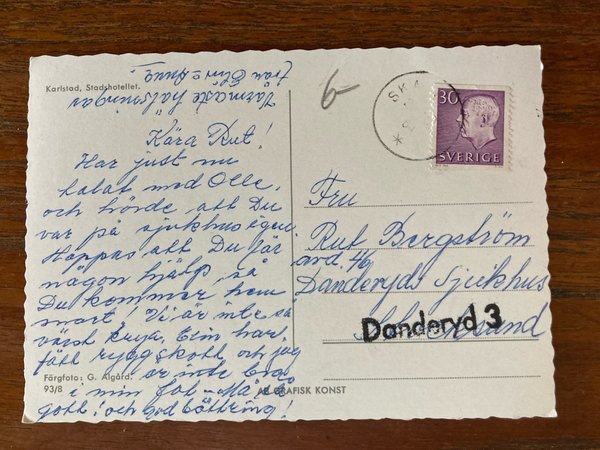 Karlstad, Stadshotellet.
Kära Rut!
Har just nu
talat med Olle,
och hörde att Du
var på sjukhus igen.
Hoppas att Du får
någon hjälp, så
Du kommer hem
snart! Vi är inte så
värst krya. Elin har
fått ryggskott och jag
är inte bra
i min fot. Må så
gott! och god bättring!
Varmaste hälsningar
från Elin o Anna.
Färgfoto: G. Algård.
93/8
AB GRAFISK KONST
6
SKA
30
SVERIGE
Fru
Rut Bergström
avd. 46
Danderyds Sjukhus
Danderyd 3